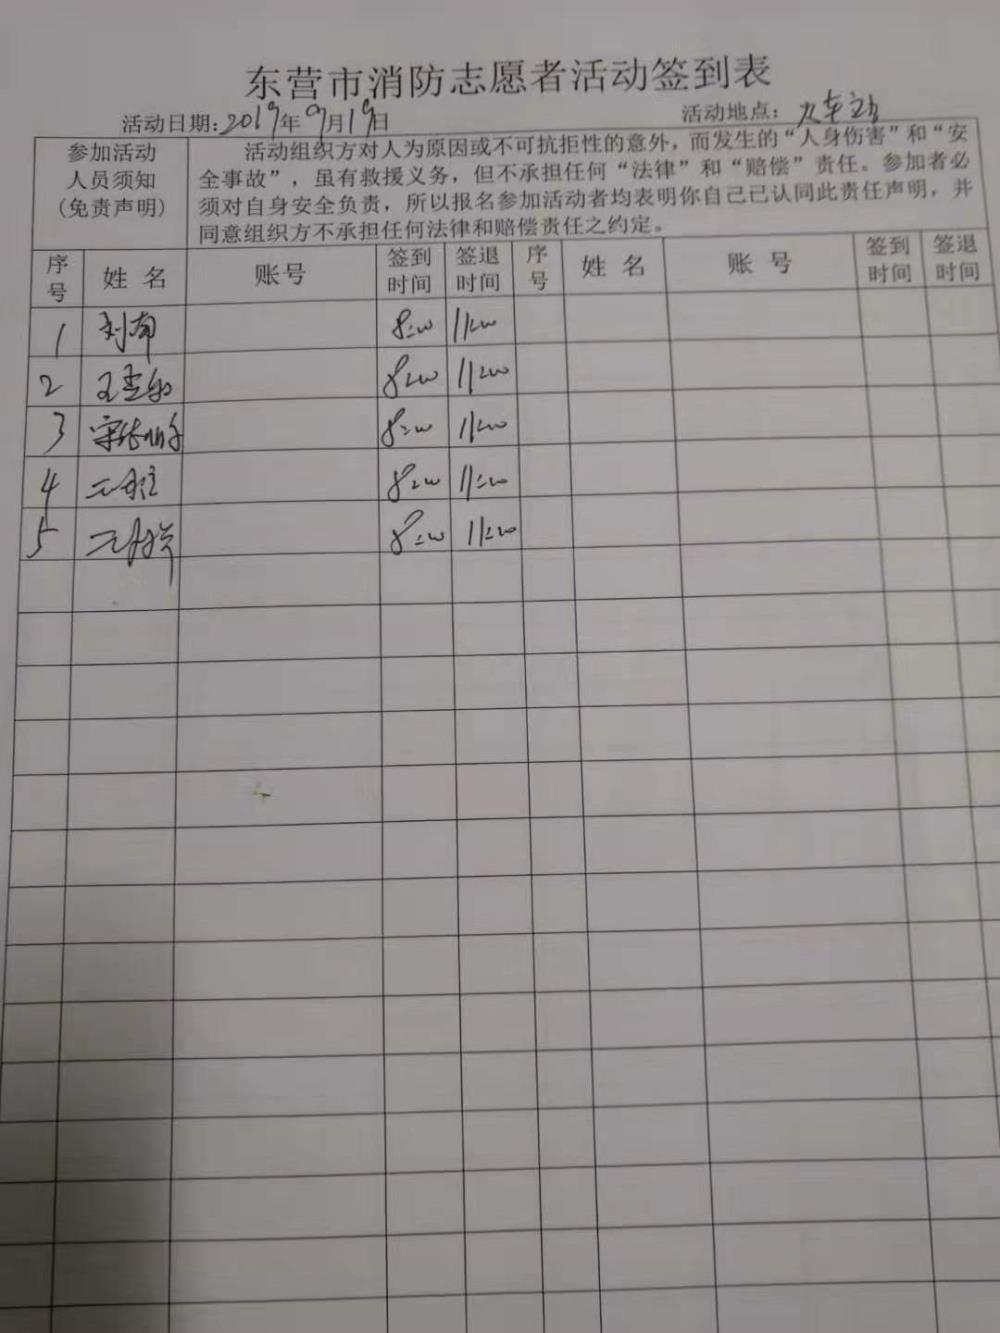 东营市消防志愿者活动签到表
活动日期：2019年9月19日 活动地点：火车站
参加活动
人员须知
(免责声明)
活动组织方对人为原因或不可抗拒性的意外，而发生的“人身伤害”和“安
全事故”，虽有救援义务，但不承担任何“法律”和“赔偿”责任。参加者必
须对自身安全负责，所以报名参加活动者均表明你自己已认同此责任声明，并
同意组织方不承担任何法律和赔偿责任之约定。
序号 姓名 账号 签到时间 签退时间 序号 姓名 账号 签到时间 签退时间
1 8:00 11:00
2 8:00 11:00
3 8:00 11:00
4 8:00 11:00
5 8:00 11:00